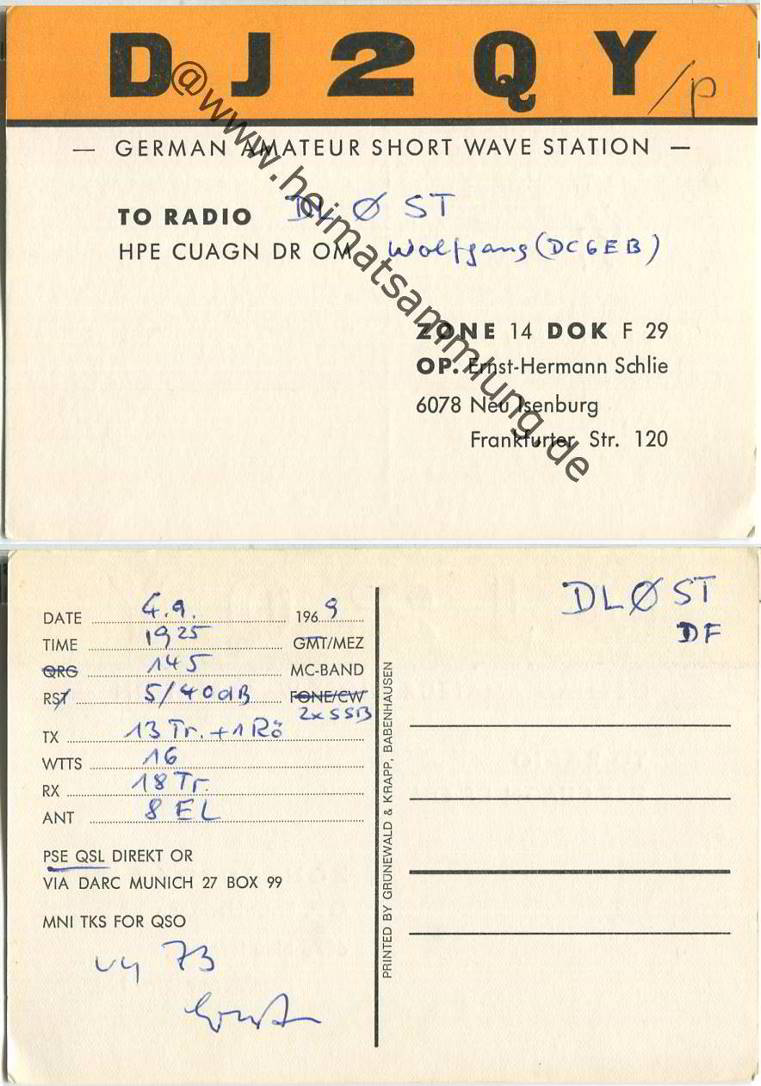 DJ2QY/p
— GERMAN AMATEUR SHORT WAVE STATION —
TO RADIO DLØST
HPE CUAGN DR OM Wolfgang (DC6EB)
ZONE 14 DOK F 29
OP. Ernst-Hermann Schlie
6078 Neu Isenburg
Frankfurter Str. 120
@www.heimatsammlung.de
DATE 4.9. 196 9
TIME 1925 GMT/MEZ
QRG 145 MC-BAND
RST 5/40dB FONE/CW
2xSSB
TX 13 Tr. + 1 Rö
WTTS 16
RX 18 Tr.
ANT 8 EL
PSE QSL DIREKT OR
VIA DARC MUNICH 27 BOX 99
MNI TKS FOR QSO
vy 73
Ernst
PRINTED BY GRÜNEWALD & KRAPP, BABENHAUSEN
DLØST
DF